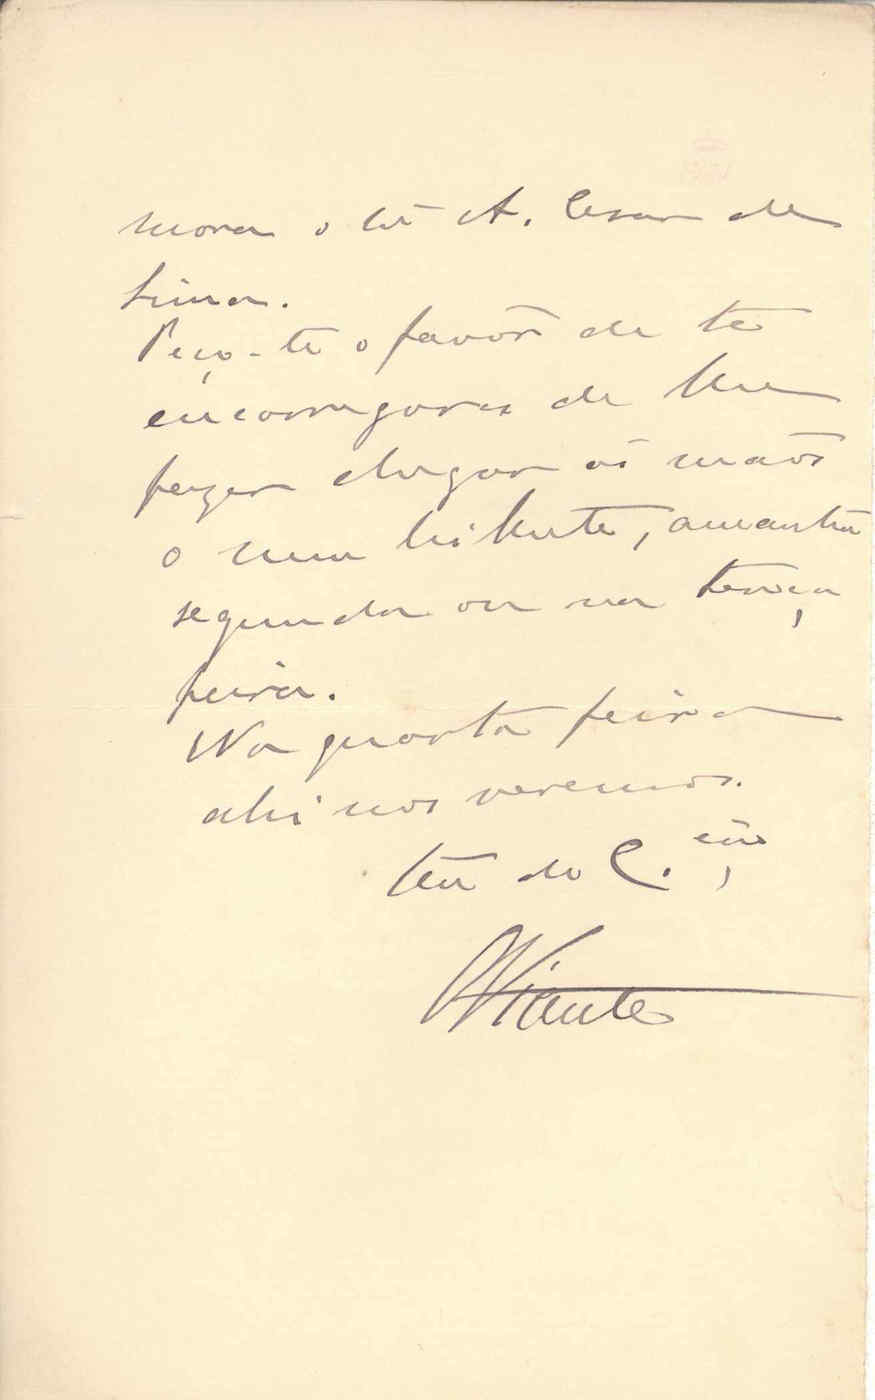 mora o tal A. Cesar de
Lima.
Peço-te o favôr de te
encarregares de lhe
fazer chegar ás mãos
o meu bilhete, amanhã
segunda ou na terça
feira.
Na quarta feira
ahi nos veremos.
teu do C.
Vicente